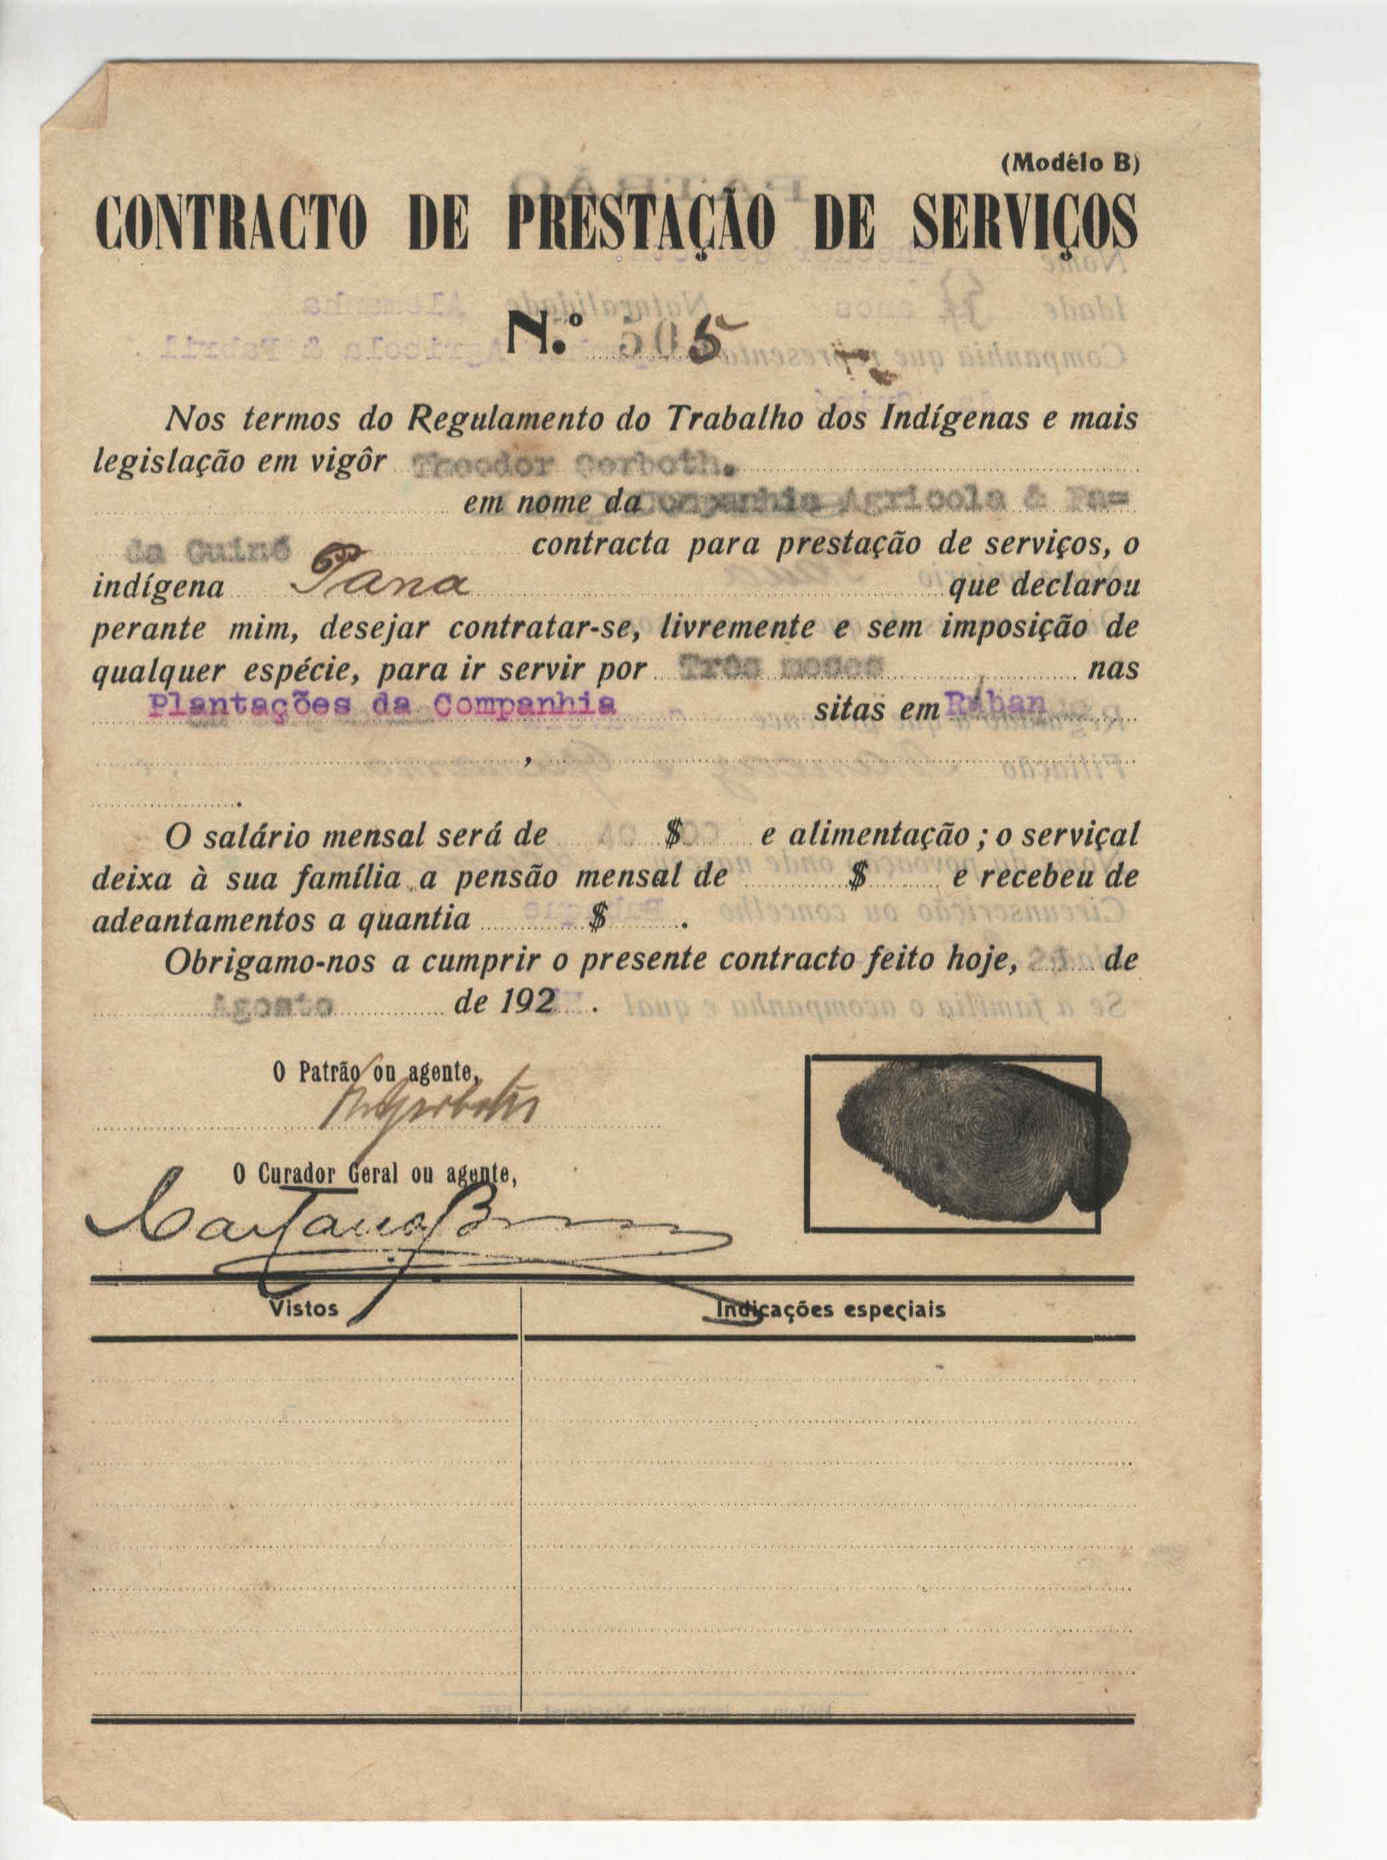 (Modêlo B)
CONTRACTO DE PRESTAÇÃO DE SERVIÇOS
N.º 505
Nos termos do Regulamento do Trabalho dos Indígenas e mais
legislação em vigôr Theodor Gerboth.
em nome da Companhia Agricola & Fa=
da Guiné contracta para prestação de serviços, o
indígena Pana que declarou
perante mim, desejar contratar-se, livremente e sem imposição de
qualquer espécie, para ir servir por Três meses nas
Plantações da Companhia sitas em Ruban
,
.
O salário mensal será de $ e alimentação ; o serviçal
deixa à sua família a pensão mensal de $ e recebeu de
adeantamentos a quantia $ .
Obrigamo-nos a cumprir o presente contracto feito hoje, de
Agosto de 192 .
O Patrão ou agente,
O Curador Geral ou agente,
Caetano
Vistos Indicações especiais